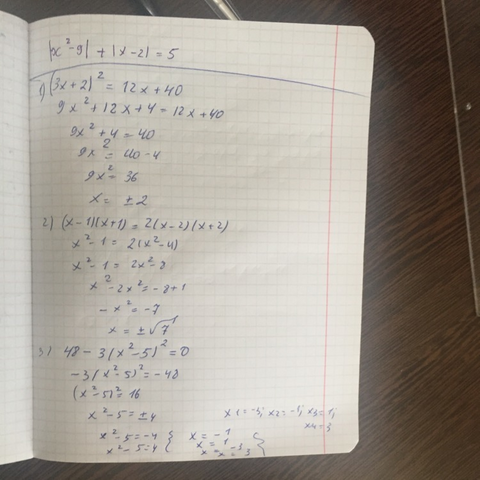 |x²-9| + |x-2| = 5
1) (3x+2)² = 12x+40
9x²+12x+4 = 12x+40
9x²+4 = 40
9x² = 40-4
9x² = 36
x = ±2
2) (x-1)(x+1) = 2(x-2)(x+2)
x²-1 = 2(x²-4)
x²-1 = 2x²-8
x²-2x² = -8+1
-x² = -7
x = ±√7
3) 48-3(x²-5)² = 0
-3(x²-5)² = -48
(x²-5)² = 16
x²-5 = ±4
x1=-3; x2=-1; x3=1;
x4=3
x²-5=-4 { x = -1
x²-5=4 { x = 1
x = -3
x = 3